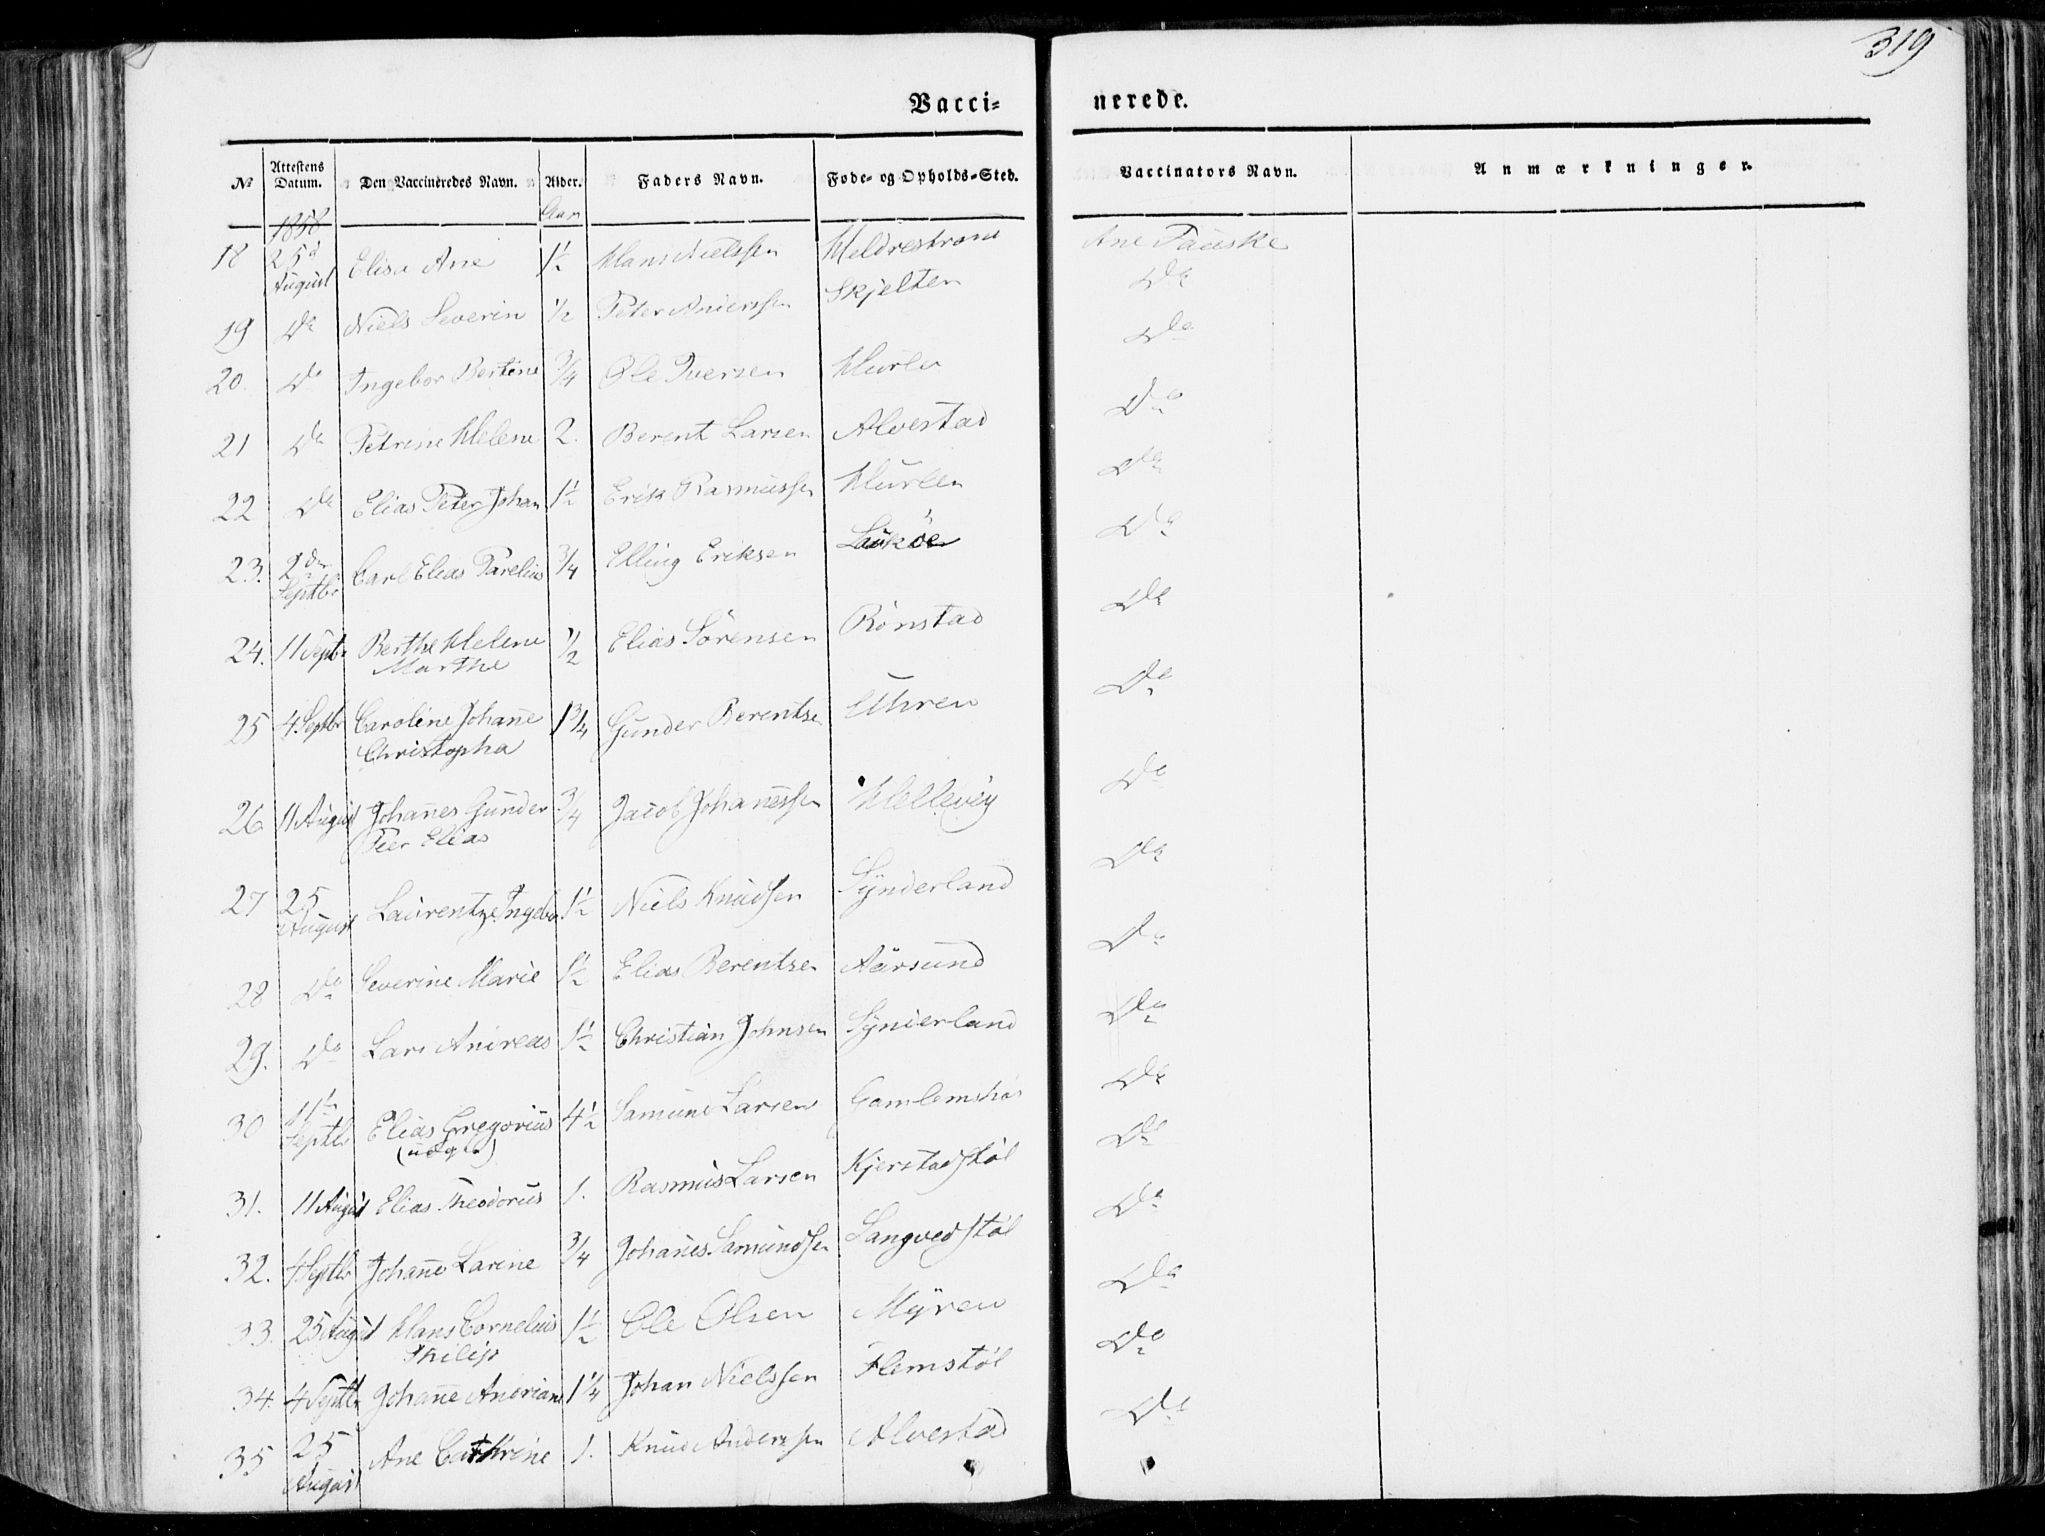 319
Vaccinerede.
No Attestens Datum. Den Vaccineredes Navn. Alder. Faders Navn. Føde- og Opholds-Sted. Vaccinators Navn. Anmærkninger.
1858 Aar
18 25d August Elisa Ane 1½ Hans Nielssen Hildrestrand Ane Fauske
19 Do Niels Severin ½ Peter Anderssen Skjelten Do
20. Do Ingebor Bertine ¾ Ole Iversen Hurlen Do
21 Do Petrine Helene 2. Berent Larsen Alvestad Do
22 Do Elias Peter Johan 1½ Erik Rasmussen Hurlen Do
23. 2den Septbr Carl Elias Parelius ¾ Elling Eriksen Laukøe Do
24. 11 Septbr Berthe Helene ½ Elias Sørensen Rönstad Do
Marthe
25 4 Septbr Caroline Johanne 1¾ Gunder Berentsen Uhren Do
Christopha
26 11 August Johannes Gunder ¾ Jacob Johanessen Hellevig Do
Peer Elias
27 25 August Laurentze Ingebor 1½ Niels Knudsen Synderland Do
28 Do Severine Marie 1½ Elias Berentsen Aarsund Do
29. Do Lars Andreas 1½ Christian Johnsen Synderland Do
30 11te Septbr Elias Gregorius 4½ Samund Larsen Gamlems Do
31. 11 August Elias Theodorus 1. Rasmus Larsen Kjerstadstøl Do
32. 4 Septbr Johanne Larine ¾ Johanes Samundsen Langvedstøl Do
33. 25 August Hans Cornelius 1½ Ole Olsen Myren Do
Philip
34. 4 Septbr Johanne Andriane 1¼ Johan Nielssen Flemstøl Do
35 25 August Ane Cathrine 1. Knud Anderssen Alvestad Do